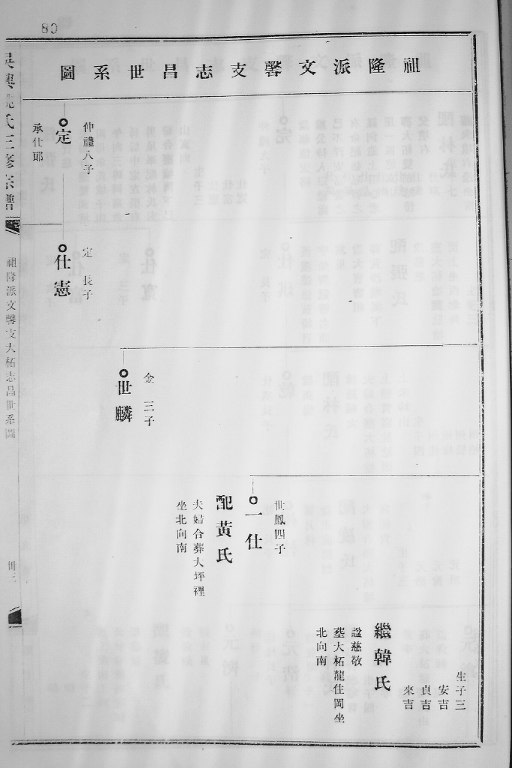 80
祖隆派文馨支志昌世系圖
生子三
安吉
貞吉
來吉
繼韓氏
諡慈敬
墓大柘龍住岡坐
北向南
世鳳四子
一仕
配黃氏
夫婦合葬大坪裡
坐北向南
金 三子
世麟
仲 八子
定
承仕郎
定 長子
仕憲
氏三修宗譜
祖隆派文馨支大柘志昌世系圖
卅三